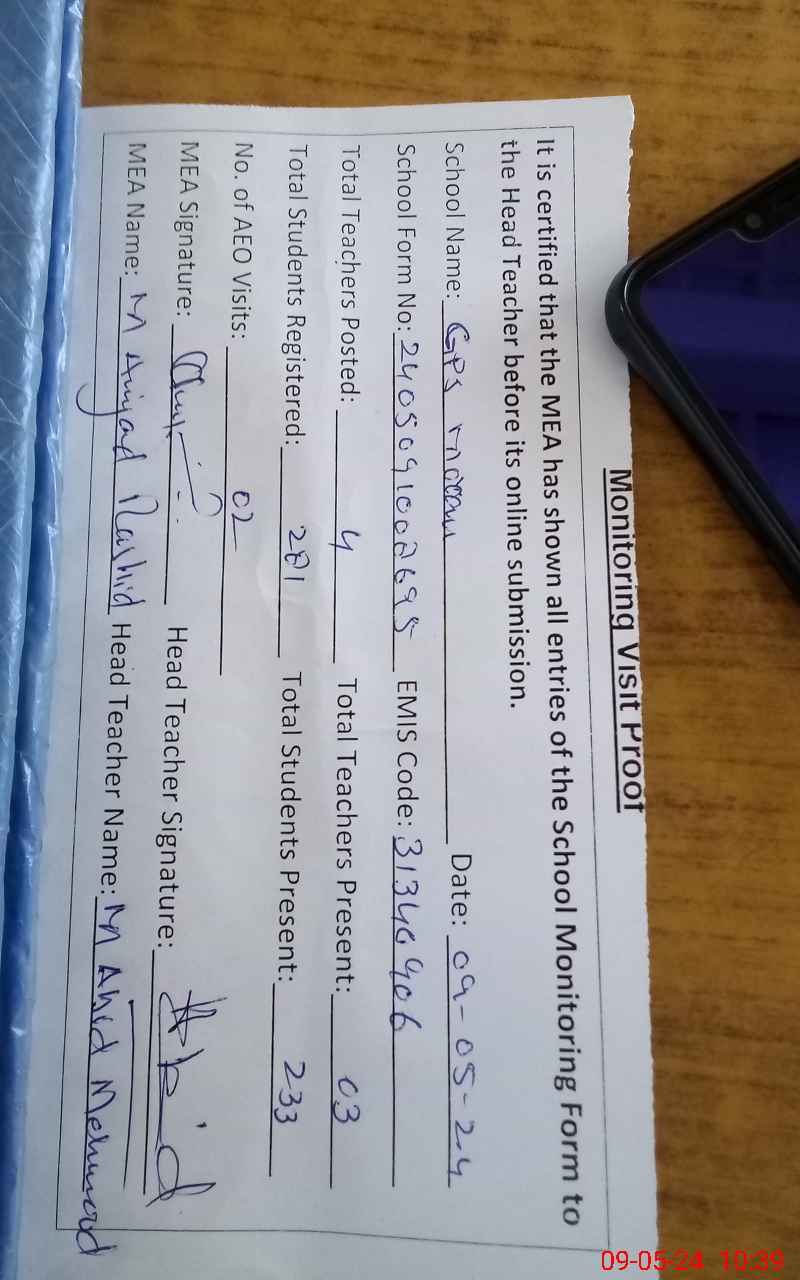 Monitoring Visit Proof
It is certified that the MEA has shown all entries of the School Monitoring Form to
the Head Teacher before its online submission.
School Name: GPS Date: 09-05-24
School Form No: EMIS Code: 31340906
Total Teachers Posted: 4 Total Teachers Present: 03
Total Students Registered: 281 Total Students Present: 233
No. of AEO Visits: 02
MEA Signature: Head Teacher Signature: Abid
MEA Name: M Amjad Rashid Head Teacher Name: M Abid Mehmood
09-05-24 10:39